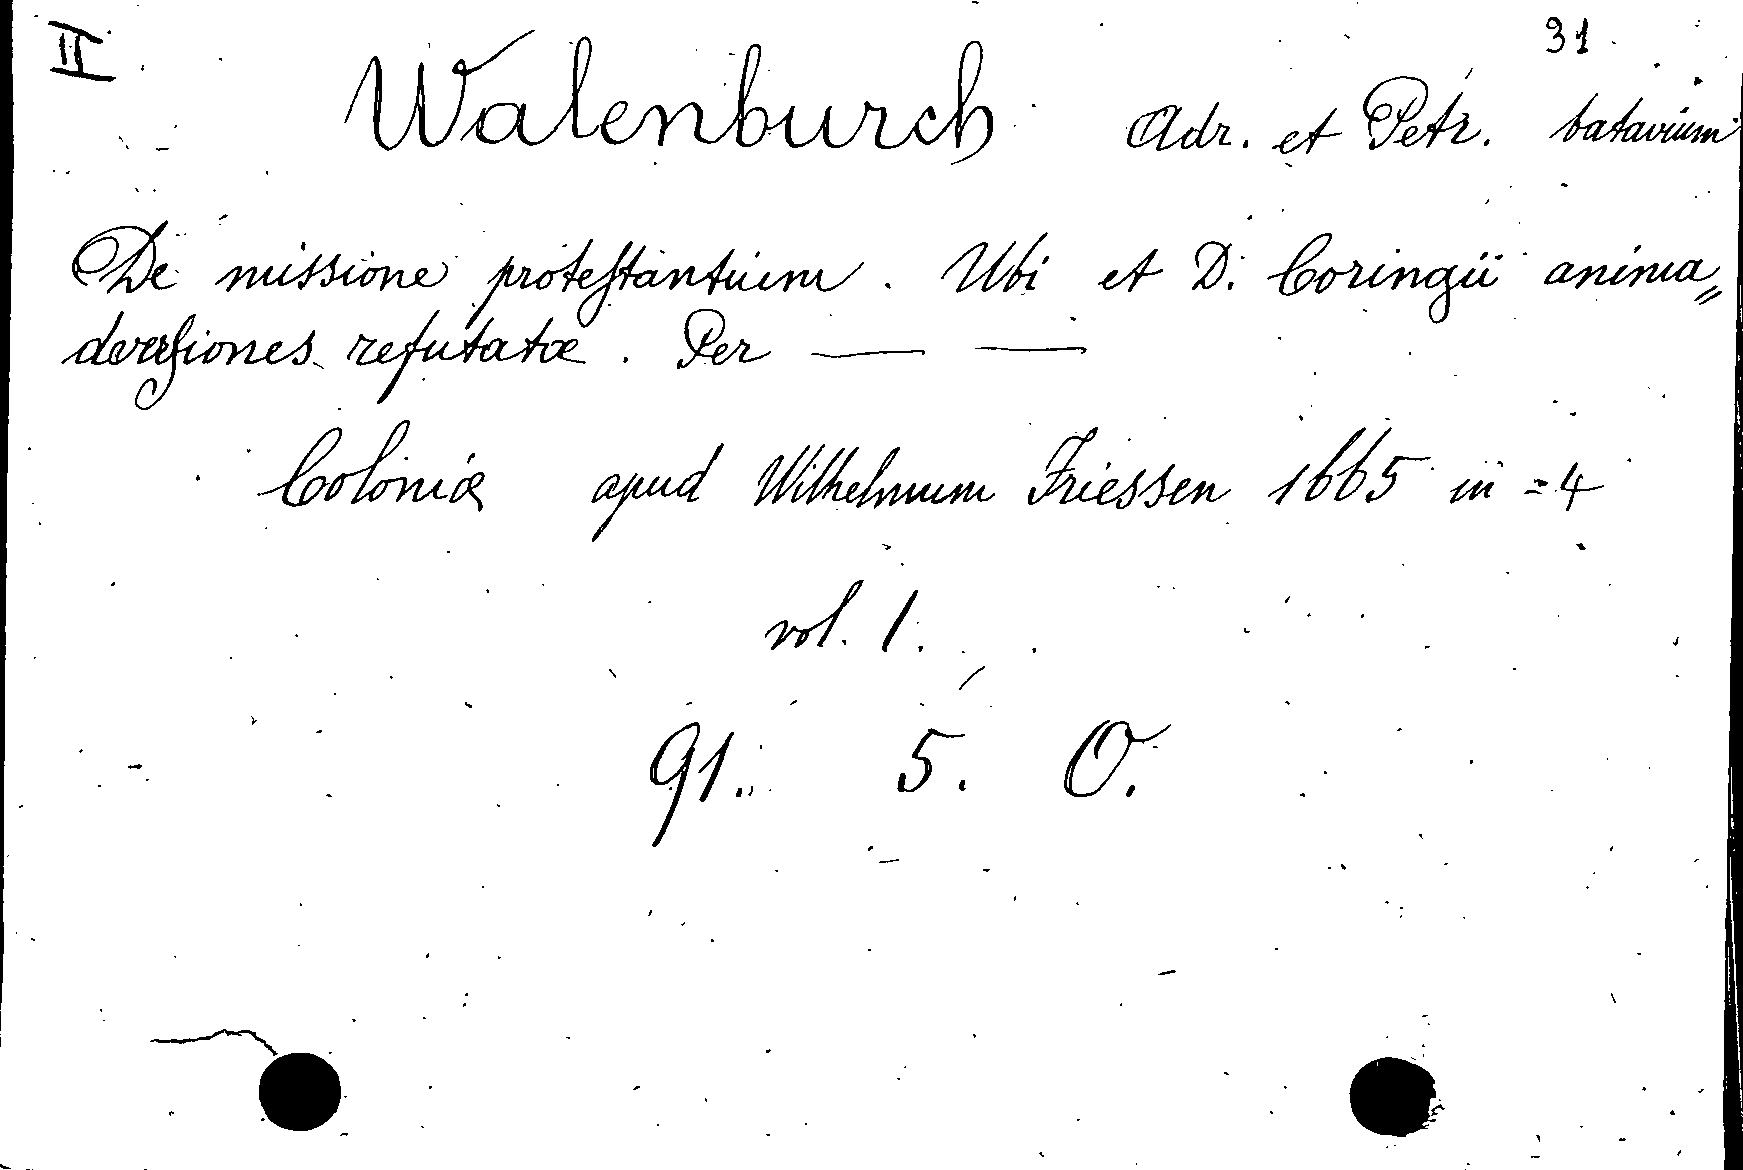 II
31
Walenburch Adr. et Petr. batavium
De missione protestantium. Ubi et D. Coringii anima„
dversiones refutatæ. Per — —
Coloniæ apud Wilhelmum Friessen 1665 in =4
vol. 1.
91. 5. O.